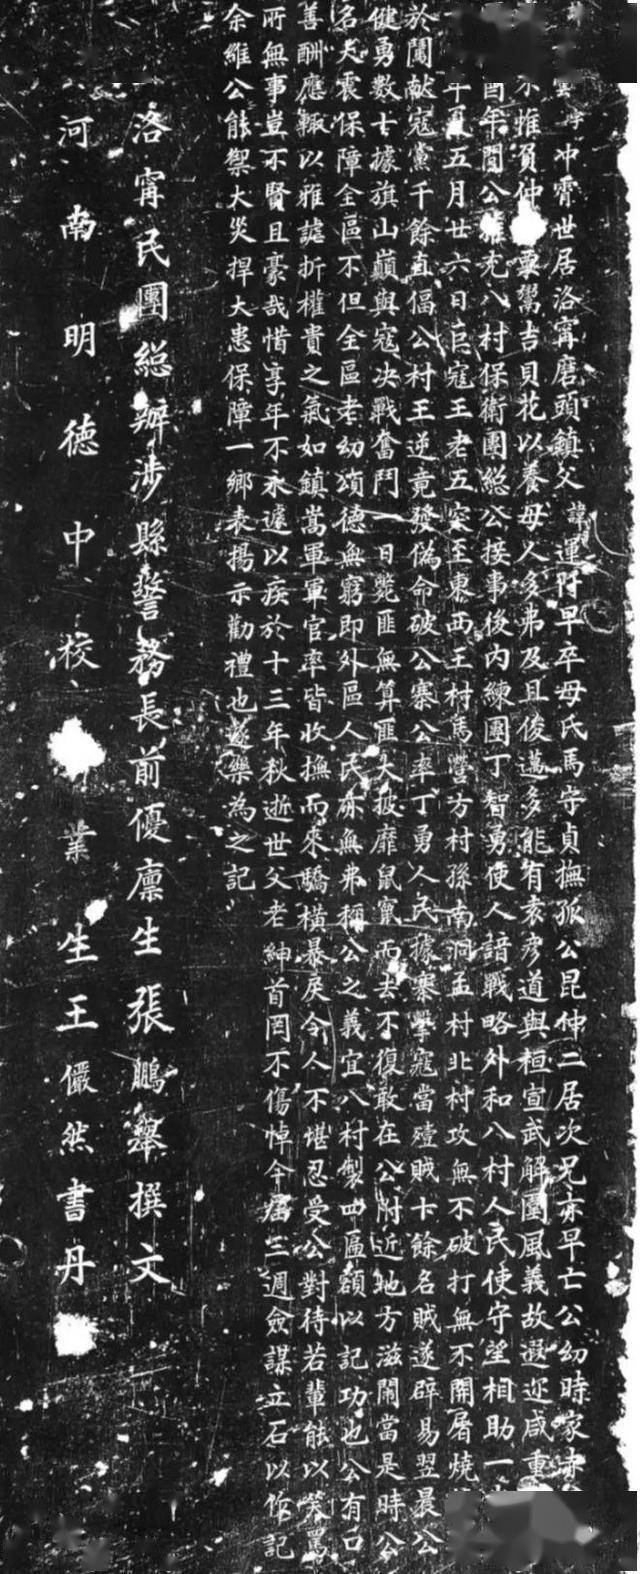 字冲霄世居洛甯磨頭鎮父諱運阡早卒母氏馬守貞撫孤公昆仲二居次兄亦早亡公幼時家
不惟負仲粟鬻吉貝花以養母人多弗及且俊邁多能有袁彦道與桓宣武解圍風義故遐迩咸重
酉年間公推充八村保衛團総公接事後内練團丁智勇使人諳戰略外和八村人民使守望相助一
年夏五月廿六日巨寇王老五突至東西王村馬營方村孫南洞孟村北村攻無不破打無不開屠燒
於闖献寇黨千餘直偪公村王逆竟發偽命破公寨公率丁勇人民據寨擊寇當殪賊十餘名賊遂辟易翌晨公
健勇数十據旗山巔與寇决戰奮鬥一日斃匪無算匪大披靡鼠竄而去不復敢在公附近地方滋閙當是時公
名大震保障全區不但全區老幼頌德無窮即外區人民亦無弗稱公之義宜八村製四區額以記功也公有口
善酬應輙以雅謔折權貴之氣如鎮嵩軍軍官率皆收撫而來驕横暴戾令人不堪忍受公對待若輩能以笑罵
所無事豈不賢且豪哉惜享年不永遽以疾於十三年秋逝世父老紳首罔不傷悼今届三週僉謀立石以作記
余維公能禦大災捍大患保障一鄉表揚示勸禮也遂樂為之記
洛甯民團総辦涉縣警務長前優廩生張鵬舉撰文
河南明德中校業生王儼然書丹